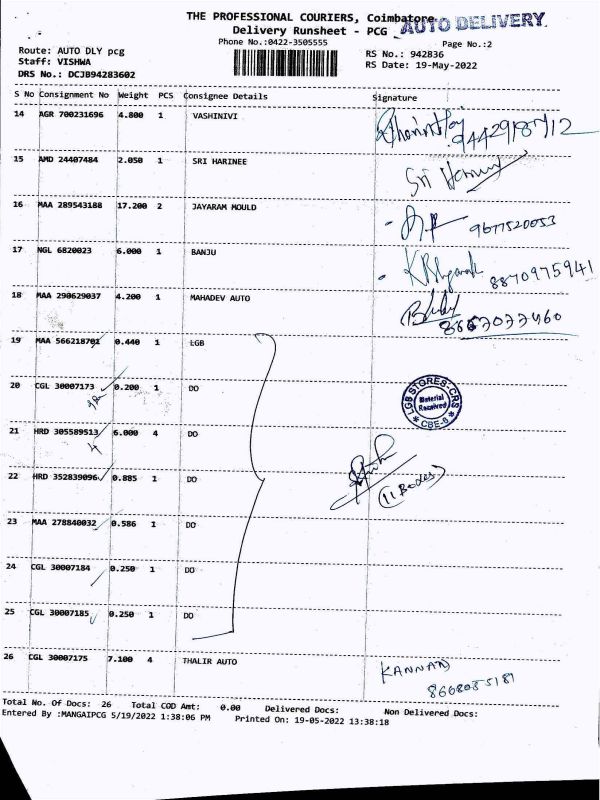 THE PROFESSIONAL COURIERS, Coimbatore
AUTO DELIVERY
Delivery Runsheet - PCG
Phone No.:0422-3505555
Page No.:2
Route: AUTO DLY pcg
RS No.: 942836
Staff: VISHWA
RS Date: 19-May-2022
DRS No.: DCJB94283602
S No Consignment No Weight PCS Consignee Details Signature
14 AGR 700231696 4.800 1 VASHINIVI
9442918712
15 AMD 24407484 2.050 1 SRI HARINEE
Sri
16 MAA 289543188 17.200 2 JAYARAM MOULD
9677520053
17 NGL 6820023 6.000 1 BANJU
8870975941
18 MAA 290629037 4.200 1 MAHADEV AUTO
19 MAA 566218702 0.440 1 LGB
20 CGL 30007173 0.200 1 DO
LGB STORES-CRS
Material
Received
CBE-6
21 HRD 305589513 6.000 4 DO
22 HRD 352839096 0.885 1 DO
23 MAA 278840032 0.586 1 DO
24 CGL 30007184 0.250 1 DO
25 CGL 30007185 0.250 1 DO
26 CGL 30007175 7.100 4 THALIR AUTO
KANNAN
8668085181
Total No. Of Docs: 26 Total COD Amt: 0.00 Delivered Docs: Non Delivered Docs:
Entered By :MANGAIPCG 5/19/2022 1:38:06 PM Printed On: 19-05-2022 13:38:18